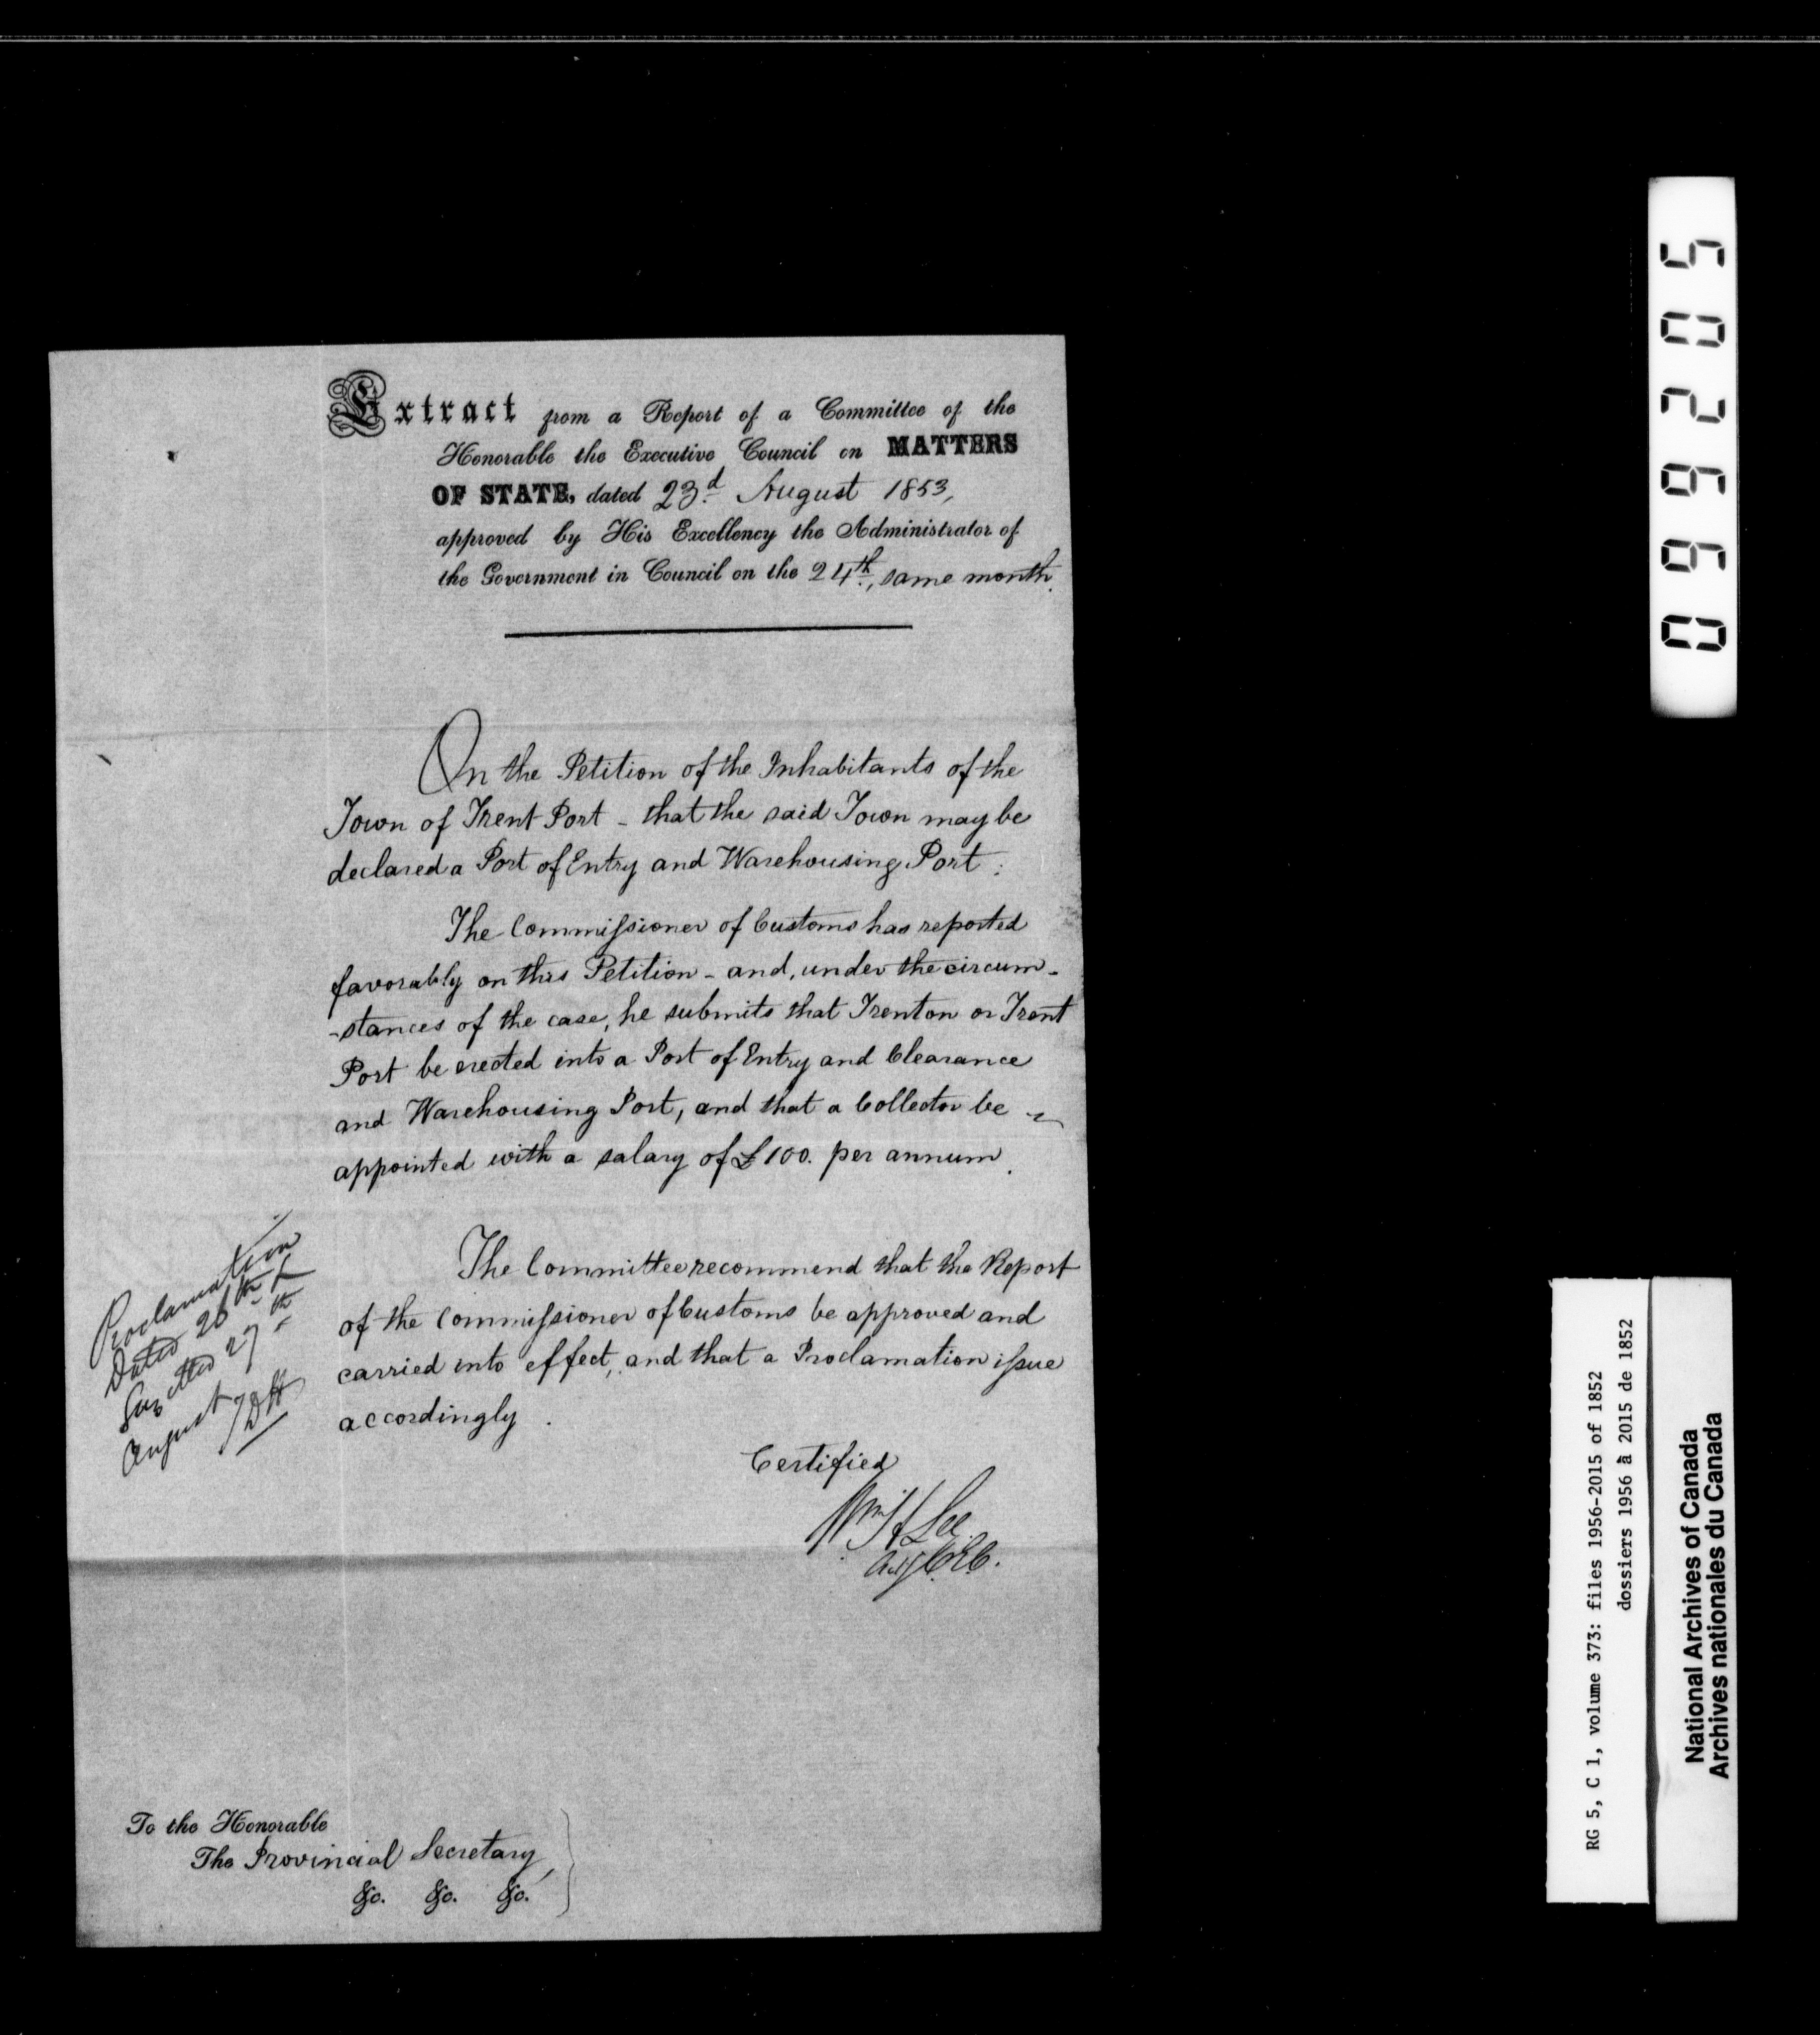 Extract from a Report of a Committee of the
Honorable the Executive Council on MATTERS
OF STATE, dated 23.d August 1853,
approved by His Excellency the Administrator of
the Government in Council on the 24th, same month.
On the Petition of the Inhabitants of the
Town of Trent Port - that the said Town may be
declared a Port of Entry and Warehousing Port:
The Commissioner of Customs has reported
favorably on this Petition - and, under the circum-
-stances of the case, he submits that Trenton or Trent
Port be erected into a Port of Entry and Clearance
and Warehousing Port, and that a Collector be
appointed with a salary of £100. per annum.
The Committee recommend that the Report
of the Commissioner of Customs be approved and
carried into effect, and that a Proclamation issue
accordingly.
Proclamation
Dated 26th &
Gazetted 27th
August
Certified
Wm H Lee
Actg C.E.C.
To the Honorable
The Provincial Secretary,
&c. &c. &c.
099205
RG 5, C 1, volume 373: files 1956-2015 of 1852
dossiers 1956 à 2015 de 1852
National Archives of Canada
Archives nationales du Canada